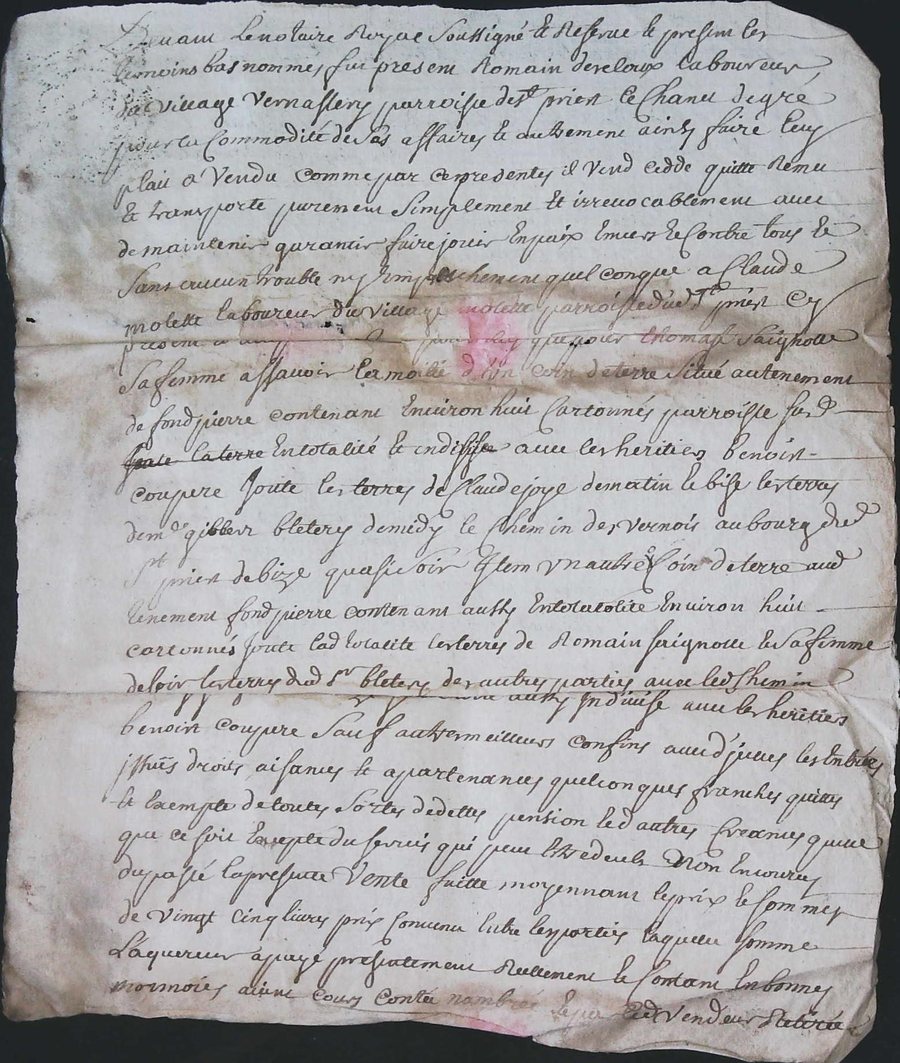 Devant Le notaire Royal Soussigné et Reservé et presents les
temoins bas nommés fut present Romain dereloux Laboureur
du village vernassery parroisse de st priest Le Chanet de gré
pour La Commodité de Ses affaires et autrement ainsy faire luy
plait a Vendu comme par ces presentes il vend cedde quitte Remet
Et transporte purement Simplement Et irrevocablement avec
de maintenir garantir faire jouir En paix Envers Et Contre tous Et
Sans aucun trouble ny Empeschement quelconque a Claude
molette Laboureur du village molette parroisse dud St priest Cy
present que pour thomasse Saignolle
Sa femme assavoir La moitié d'un coin de terre Situé au tenement
de fondpierre contenant Environ huit Cartonnés parroisse sud
la terre En totalité Et indivise avec les heritiers benoist
coupere Joute les terres de Claude joye de matin Et bise les terres
de md gilbert bletery de medy Le Chemin des vernois au bourg dud
St priest de bize quasi Soir Item un autre Coin de terre aud
tenement fondpierre contenant aussy En totalité Environ huit
cartonnés Joute lad totalité les terres de Romain saignolle Et Sa femme
de soir les terres dud Sr bletery des autres parties avec led Chemin
aussy Indivise avec les heritiers
benoist coupere Sauf autres meilleurs confins avec d'jceux les Entrées
jssues droits aisances Et apartenances quelconques franches quittes
Et Exempte de toutes Sortes de dettes pension Et d'autres Creances quelle
que ce soit Excepté du servis qui peut Estre deub Non Encourus
du passé La presente Vente faitte moyennant Le prix Et Somme
de Vingt cinq livres prix Convenu Entre les parties laquelle Somme
L'aquereur a payé presentement Reellement Et Contant En bonnes
monnoies aiant cours Contée nombrée led Vendeur Retirée